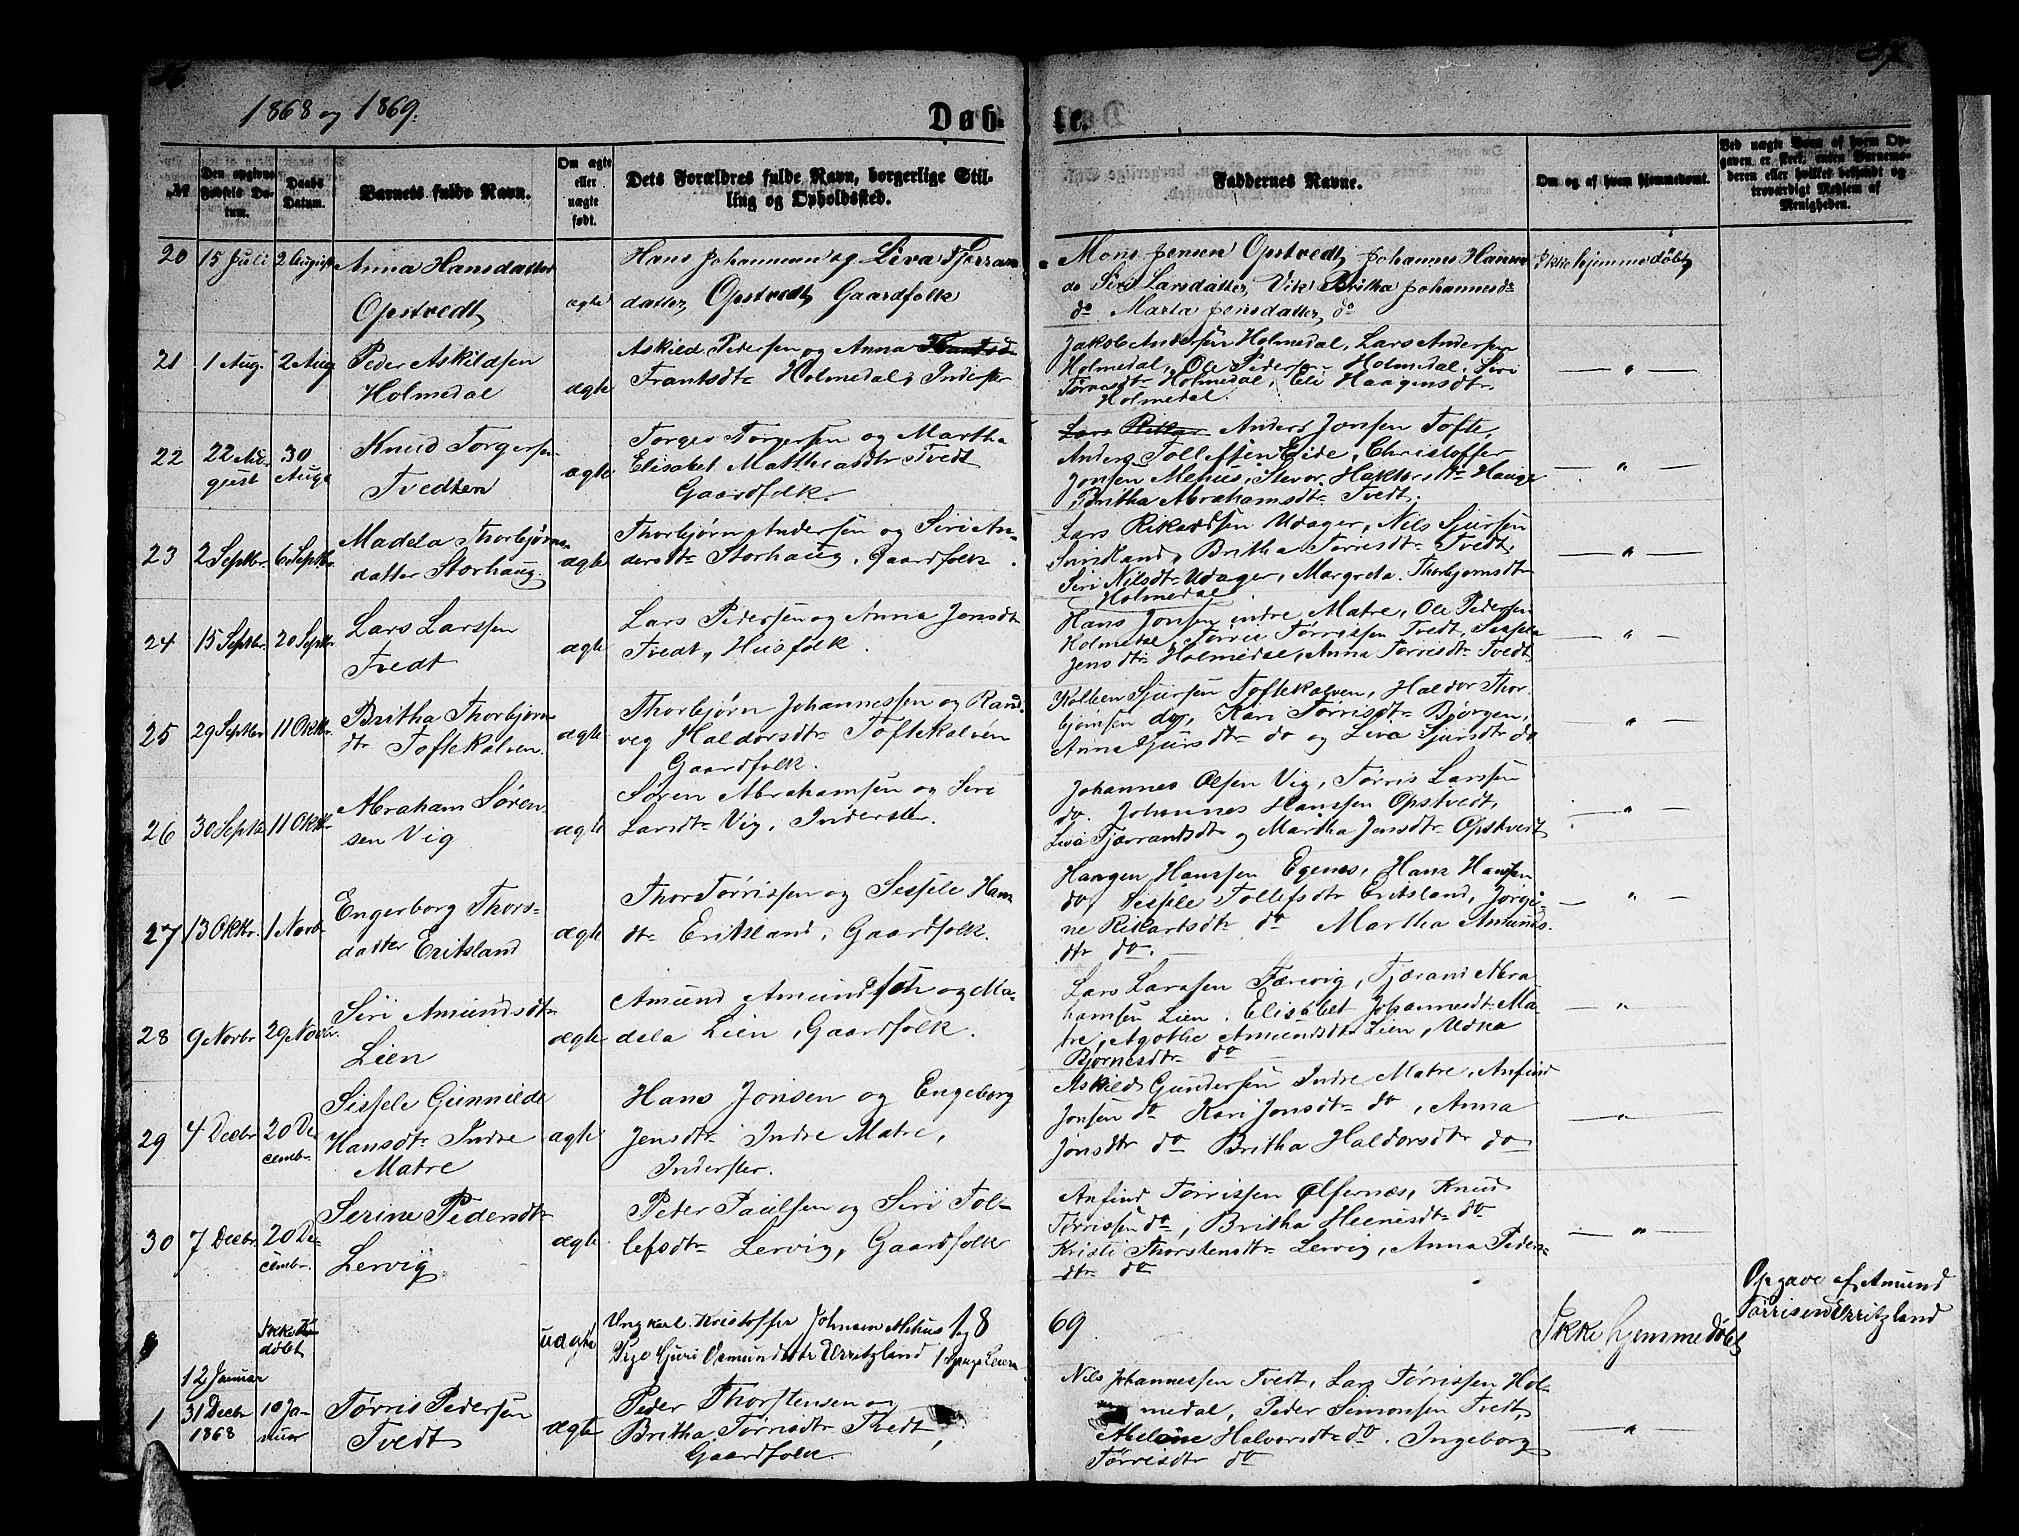 1868 og 1869.
Døb-
te.
№
Den opgivne Fødsels Da-
tum.
Daabs Datum.
Barnets fulde Navn.
Om ægte eller uægte født.
Dets Forældres fulde Navn, borgerlige Stil-
ling og Opholdssted.
Faddernes Navne.
Om og af hvem hjemmedøbt.
Ved uægte Børn af hvem Op-
gaven er skeet, enten Barnemo-
deren eller hvilket bekjendt og
troværdigt Medlem af
Menigheden.
20 15 Juli 2 August
Anna Hansdatter
Opstvedt
ægte
Hans Johannesen og Liva Tjerran
datter, Opstvedt, Gaardfolk
Mons Jensen Opstvedt, Johannes Hansen
do Siri Larsdatter, Vik, Britha Johannesd
do Marta Jensdatter, do
Ikke hjemmedøbt
21 1 Aug. 2 Aug
Peder Askildsen
Holmedal
ægte
Askild Pedersen og Anna
Frantsdtr Holmedal, Inderster
Jakob Andersen Holmedal, Lars Andersen
Holmedal, Ole Pedersen Holmedal, Siri
Tørresdtr Holmedal, Eli Haagensdtr
Holmedal.
— " —
22 22 Au-
gust 30
Augs
Knud Torgersen
Tvedten
ægte
Torges Torgersen og Martha
Elisabet Matthiasdtr Tvedt
Gaardfolk.
Anders Jonsen Tofte,
Anders Tollefsen Eide, Christoffer
Jonsen Mehus, Hektorsdtr Hauge
Britha Abrahamsdtr Tvedt.
— " —
23 2 Septbr. 6 Septbr.
Madela Thorbjørns-
datter Storhaug
ægte
Thorbjørn Andersen og Siri An-
dersdtr Storhaug, Gaardfolk
Lars Rikardsen Udager, Nils Sjursen
Britha Tørrisdtr Tvedt,
Siri Nilsdtr Udager, Margreta Thorbjørnsdtr
Holmedal
— " —
24 15 Septbr. 20 Septbr.
Lars Larssen
Tvedt
ægte
Lars Pedersen og Anna Jonsdt
Tvedt, Husfolk.
Hans Jonsen indre Matre, Ole Pedersen
Holmedal, Tørres Tørrissen Tvedt, Sessela
Jensdtr Holmedal, Anna Tørrisdtr Tvedt
— " —
25 29 Septbr 11 Oktbr.
Britha Thorbjørn
dtr Toftekalven.
ægte
Thorbjørn Johannessen og Rand-
veg Haldorsdtr Toftekalven
Gaardfolk.
Kolben Sjursen Toftekalven, Haldor Thor-
bjørnsen do, Kari Tørrisdtr Bjørgen,
Anna Sjursdtr do og Liva Sjursdtr do
— " —
26 30 Septbr 11 Oktbr
Abraham Søren-
sen Vig
ægte
Søren Abrahamsen og Siri
Larsdtr Vig, Inderster.
Johannes Olsen Vig, Tørris Larssen
do. Johannes Hanssen Opstvedt,
Liva Tjærrandsdtr og Martha Jensdtr Opstvedt
— " —
27 13 Oktbr. 1 Novbr
Engerborg Thors-
datter Eritsland
ægte
Thor Tørrissen og Sessele Hans
dtr Eritsland, Gaardfolk.
Haagen Hanssen Egenes, Hans Hanssen
do, Sessele Tollefsdtr Eritsland, Jørgi-
ne Rikartsdtr do Martha Amunds-
dtr do.
— " —
28 9 Novbr 29 Novbr.
Siri Amundsdtr
Lien
ægte
Amund Amundsen og Ma-
dela Lien, Gaardfolk.
Lars Larssen Færevig, Tjærand Abra-
hamsen Lien. Elisabet Johannesdtr Ma-
tre, Agathe Amundsdtr Lien, Udna
Bjørnesdtr do
— " —
29 4 Decbr 20 De-
cembr.
Sissele Gunnilde
Hansdtr Indre
Matre
ægte
Hans Jonsen og Engeborg
Jensdtr Indre Matre,
Inderster.
Askild Gundersen Indre Matre, Anfind
Jonsen do Kari Jonsdtr do, Anna
Jonsdtr do Britha Haldorsdtr do
— " —
30 7 Decbr 20 De-
cembr.
Serine Pedersdtr
Lervig
ægte
Peder Paulsen og Siri Tol-
lefsdtr Lervig, Gaardfolk
Anfind Tørrissen Ølfernæs, Knud
Tørrissen do, Britha do
Kristi Thorstensdtr Lervig, Anna Peders-
dtr do
— " —
12 Januar
Ikke
døbt
uægte
Ungkarl. Kristoffer Johnsen Mehus
Pige Guri Osmundsdtr Erritzland
18
69
Ikke hjemmedøbt
Opgave af Amund
Tørrisen Erritzland
1 31 Decbr
1868 10 Ja-
nuar
Tørris Pedersen
Tvedt
ægte
Peder Thorstensen og
Britha Tørrisdtr Tvedt,
Gaardfolk.
Nils Johannessen Tvedt, Lars Tørrissen Hol-
medal, Peder Simonsen Tvedt,
Abelone Halvorsdtr do. Ingeborg
Tørrisdtr do
— " —